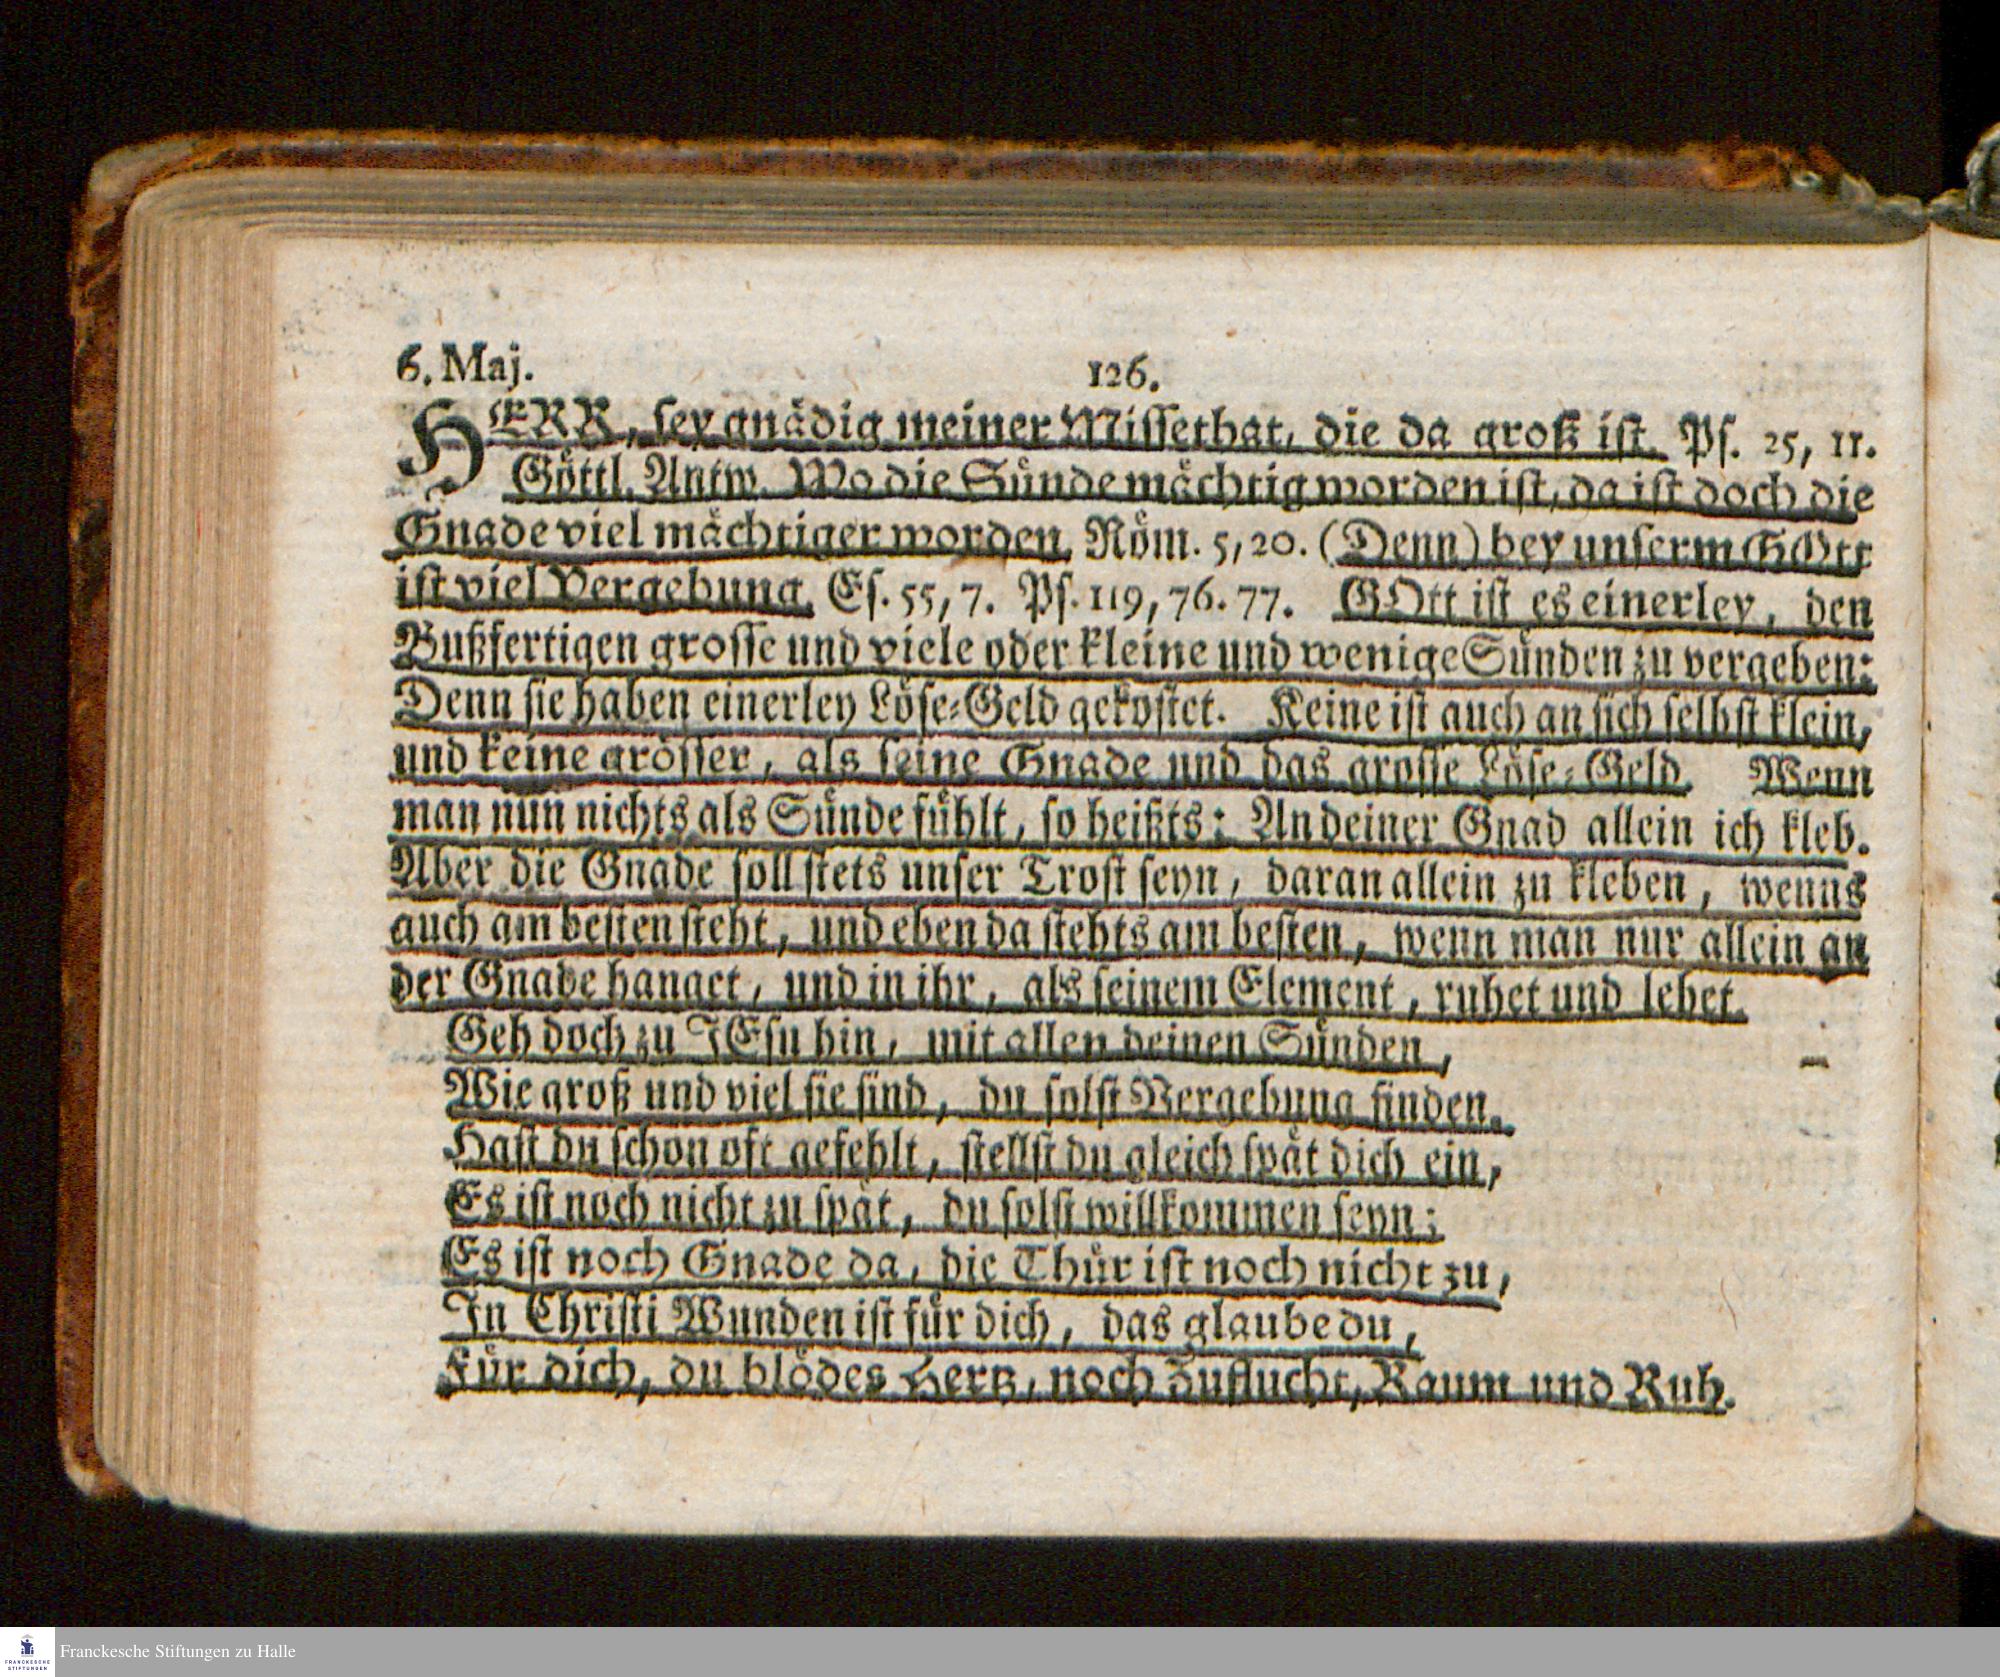 6. Maj.
126.
HERR, sey gnådig meiner Missethat, die da groß ist. Ps. 25, 11.
Gőttl. Antw. Wo die Sůnde måchtig worden ist, da ist doch die
Gnade viel måchtiger worden. Rőm. 5, 20. (Denn) bey unserm GOtt
ist viel Vergebung. Es. 55, 7. Ps. 119, 76. 77. GOtt ist es einerley, den
Bußfertigen grosse und viele oder kleine und wenige Sůnden zu vergeben:
Denn sie haben einerley Löse-Geld gekostet. Keine ist auch an sich selbst klein,
und keine grösser, als seine Gnade und das grosse Löse-Geld. Wenn
man nun nichts als Sůnde fůhlt, so heißts: An deiner Gnad allein ich kleb.
Aber die Gnade soll stets unser Trost seyn, daran allein zu kleben, wenns
auch am besten steht, und eben da stehts am besten, wenn man nur allein an
der Gnade hanget, und in ihr, als seinem Element, ruhet und lebet.
Geh doch zu JEsu hin, mit allen deinen Sůnden,
Wie groß und viel sie sind, du solst Vergebung finden.
Hast du schon oft gefehlt, stellst du gleich spåt dich ein,
Es ist noch nicht zu spåt, du solst willkommen seyn;
Es ist noch Gnade da, die Thůr ist noch nicht zu,
In Christi Wunden ist fůr dich, das glaube du,
Fůr dich, du blödes Hertz, noch Zuflucht, Raum und Ruh.
Franckesche Stiftungen zu Halle
FRANCKESCHE
STIFTUNGEN